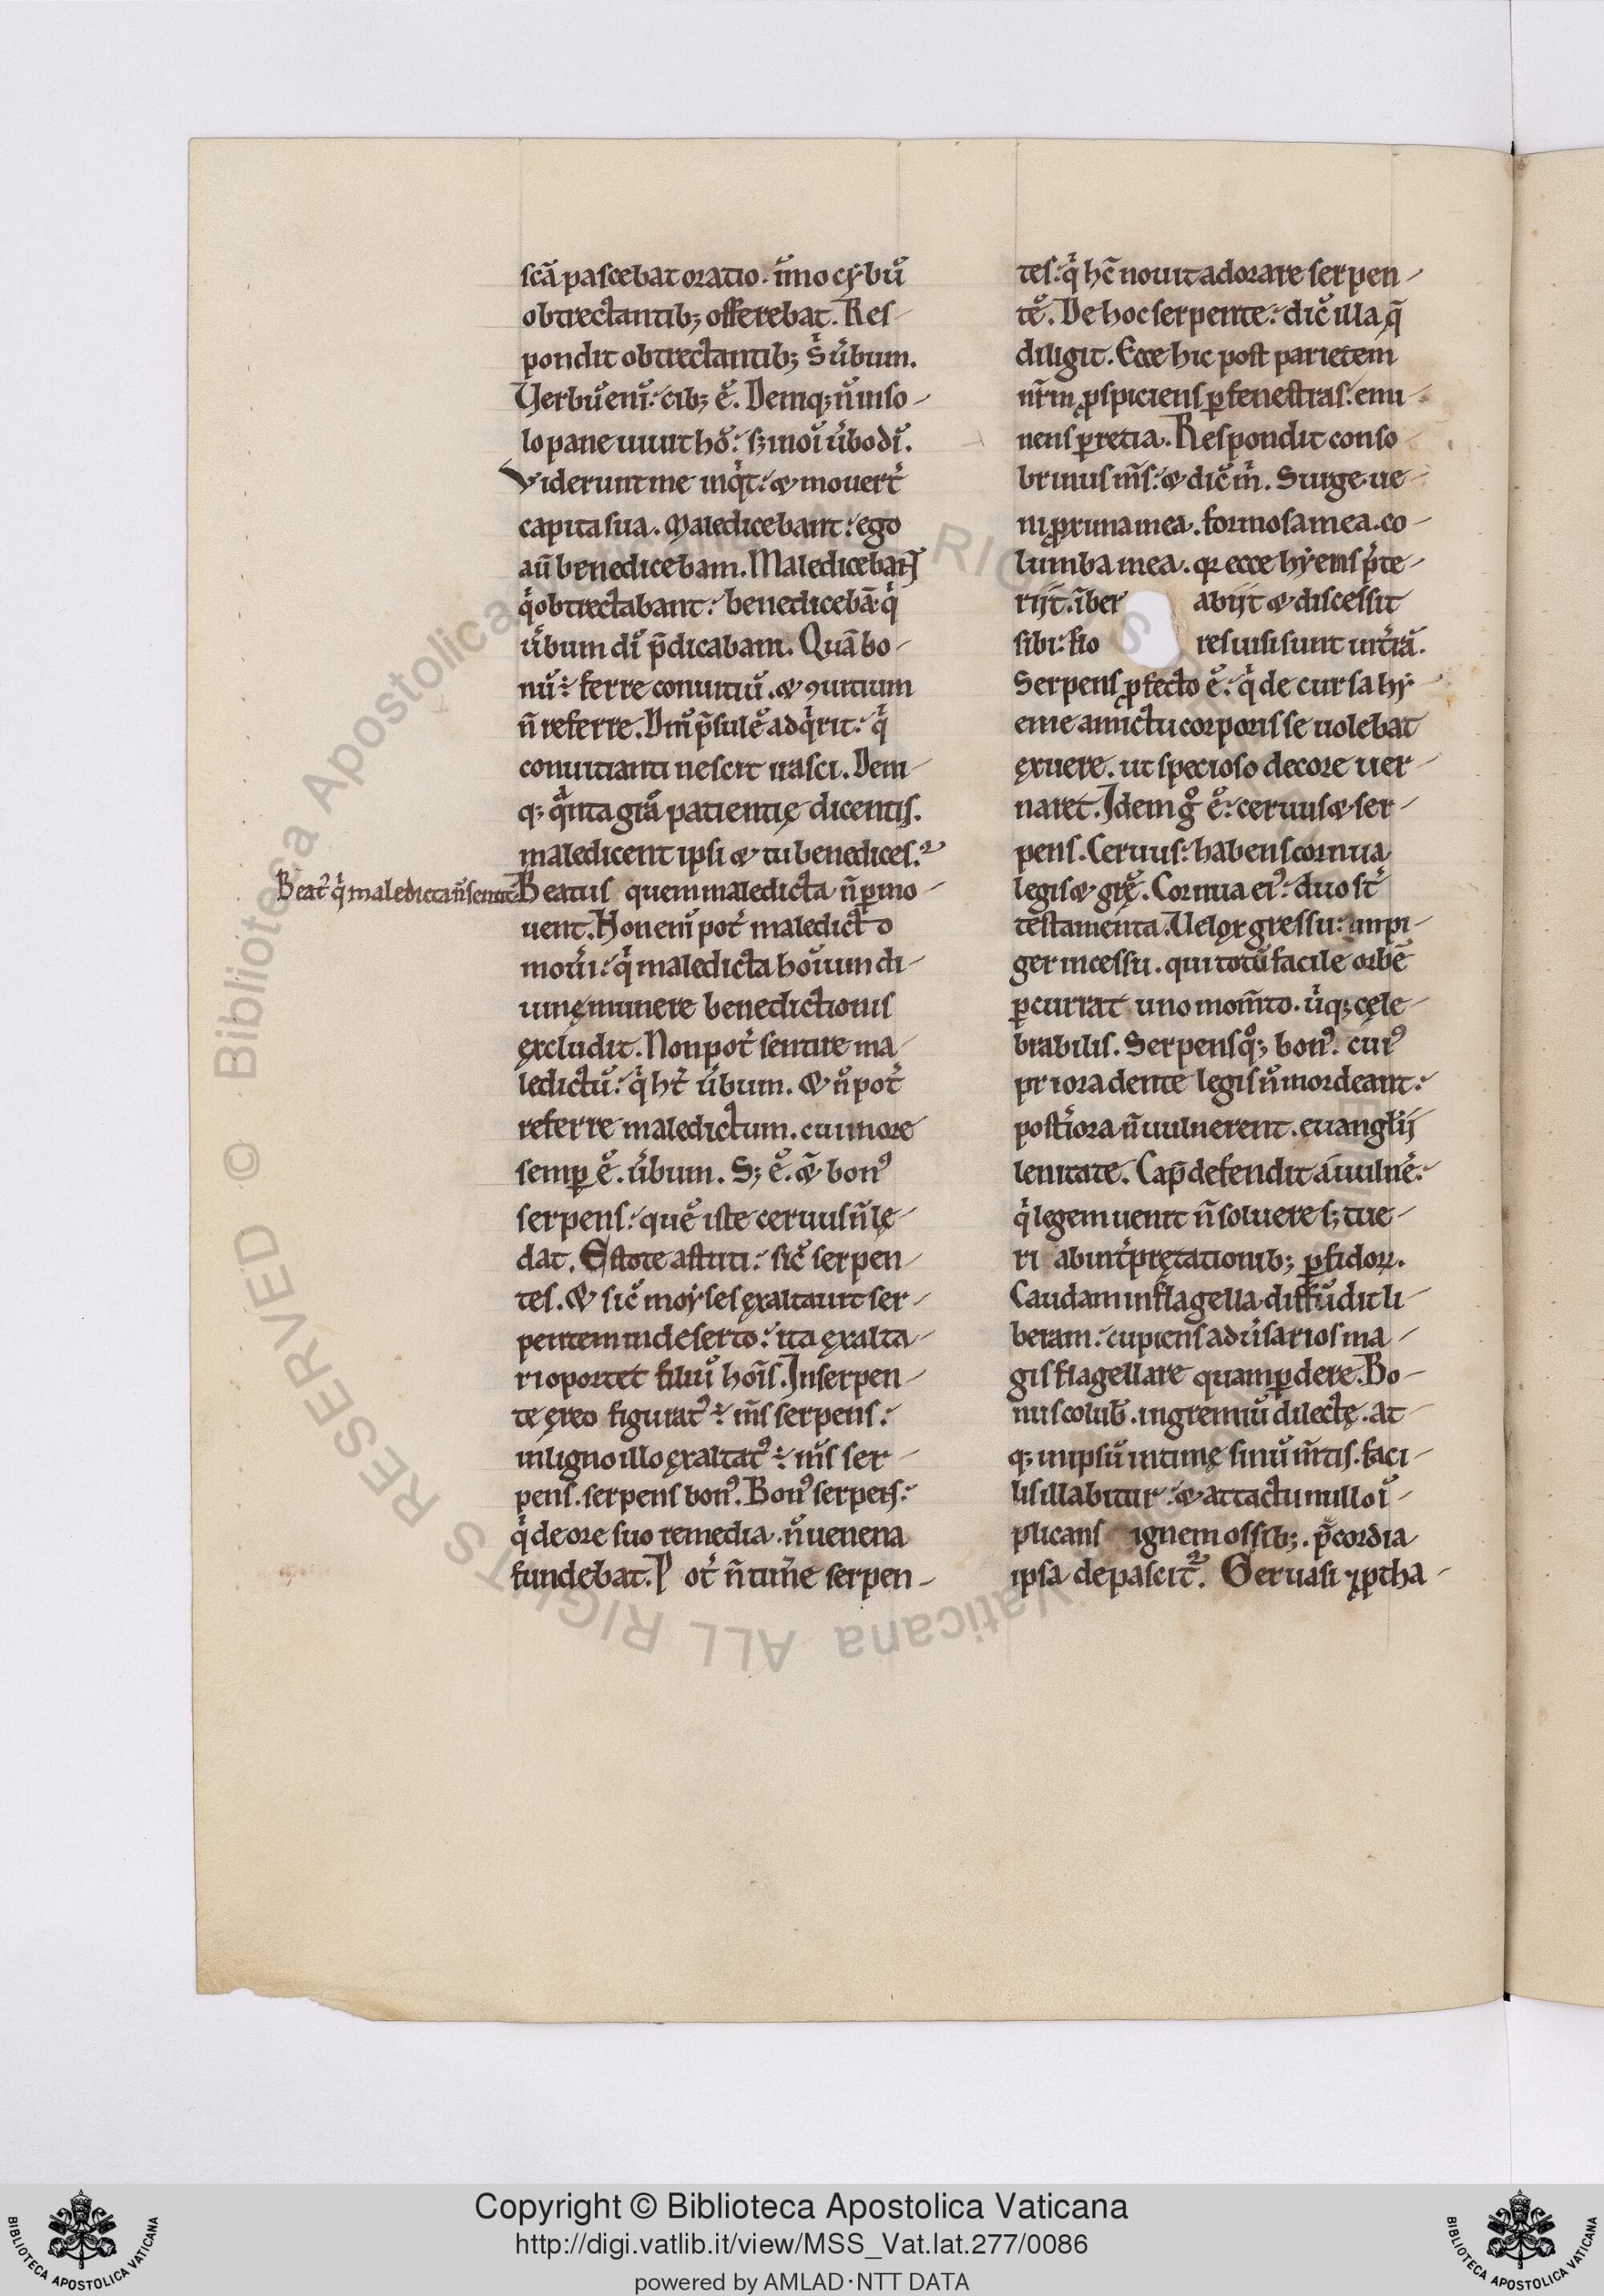 scā pascebat oratio. īmo cẏbū
obtrectantibꝫ offerebat. Res-
pondit obtrectantibꝫ s; uͥbum.
Verbū eni͂ cibꝫ ē. Deniqꝫ n̄ in so-
lo pane uiuit hō. sꝫ in oī uͥbo dī.
Viderunt me inqͥt. & mouert̄
capita sua. Maledicebant. ego
aū benedicebam. Maledicebant
qͥ obtrectabant. benedicebā qͥ
uͥbum dī p̄dicabam. Quā bo-
nū. ferre conuitiū. & ꝯuitium
n̄ referre. Dm̄ p̄sulē adqͥrit. qͥ
conuitianti nescit irasci. Deni-
qꝫ qͣnta grā patientię dicentis.
maledicent ipsi & tu benedices.
Beatꝰ qͥ maledicta n̄ sentit
Beatus quem maledicta n̄ ꝑmo-
uent. Non eni͂ pot̄ maledicto
mou͛i. qͥ maledicta hoīum di-
uinę munere benedictionis
excludit. Non pot̄ sentire ma-
ledictū. qͥ ht̄ uͥbum. & n̄ pot̄
referre maledictum. cui in ore
semꝑ ē. uͥbum. Sꝫ ē. & bonꝰ
serpens. quē iste ceruus n̄ lę-
dat. Estote astuti. sic̄ serpen-
tes. & sic̄ moẏses exaltauit ser-
pentem in deserto. ita exalta-
ri oportet filiū hoīs. In serpen-
te ęreo figuratꝰ ÷ m̄s serpens.
in ligno illo exaltatꝰ ÷ m̄s ser-
pens. serpens bonꝰ. Bonꝰ serpens.
qͥ de ore suo remedia. n̄ uenena
fundebat. Pot̄ n̄ timͤe serpen-
tes. qͥ hc̄ nouit adorare serpen-
tē. De hoc serpente. dic̄ illa q̄
diligit. Ecce hic post parietem
nr̄m ꝓspiciens ꝑ fenestras. emi-
nens ꝑ retia. Respondit conso-
brinus m̄s. & dic̄ m̄. Surge ue-
ni ꝓxima mea. formosa mea. co-
lumba mea. qꝛ ecce hẏems p̄te-
rijt. īber abijt & discessit
sibi. flo res uisi sunt in t̄rā.
Serpens ꝓfecto ē. qͥ decursa hẏ-
eme amictu corporis se uolebat
exuere. ut specioso decore uer-
naret. Idem gͦ ē. ceruus & ser-
pens. Ceruus. habens cornua
legis & grę̄. Cornua eiꝰ. duo st̄
testamenta. Velox gressu. impi-
ger incessu. qui totū facile orbē
ꝑcurrat uno mom̄to. uͥqꝫ cęle-
brabilis. Serpens qͦꝫ bonꝰ. cuiꝰ
priora dente legis n̄ mordeant.
post̄iora n̄ uulnerent. euanglij
lenitate. Cap̄ defendit a uulnē.
qͥ legem uenit n̄ soluere sꝫ tue-
ri ab int̄pretationibꝫ ꝑfidoꝝ.
Caudam in flagella diffūdit li-
beram. cupiens aduͥsarios ma-
gis flagellare quam ꝑdere. Bo-
nus colub̄. in gremiū dilectę. at-
qꝫ in ipsū intimę sinū m̄tis. faci-
lis illabitur. & attactu nullo ī-
plicans ignem ossibꝫ. p̄cordia
ipsa depascit᷑. Geruasi ꝓtha-
Copyright © Biblioteca Apostolica Vaticana
http://digi.vatlib.it/view/MSS_Vat.lat.277/0086
powered by AMLAD·NTT DATA
© Biblioteca Apostolica Vaticana ALL RIGHTS RESERVED
BIBLIOTECA APOSTOLICA VATICANA
BIBLIOTECA APOSTOLICA VATICANA